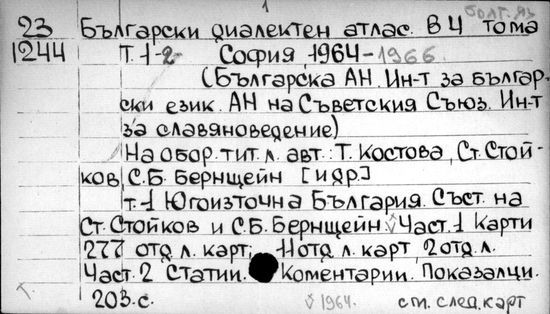 1 болг. яз
23 Български диалектен атлас. В 4 тома
1244 Т. 1-2 София, 1964-1966.
(Българска АН. Ин-т за българ-
ски език. АН на Съветския Съюз. Ин-т
за славяноведение)
На обор. тит. л. авт.: Т. Костова, Ст. Стой-
ков, С.Б. Бернщейн [и др.]
т. 1 Югоизточна България. Съст. на
Ст. Стойков и С.Б. Бернщейн. Част. 1 Карти
277 отд. л. карт, 11 отд. л. карт, 2 отд. л.
Част. 2 Статии. Коментарии. Показалци.
203. с. 1964. см. след. карт